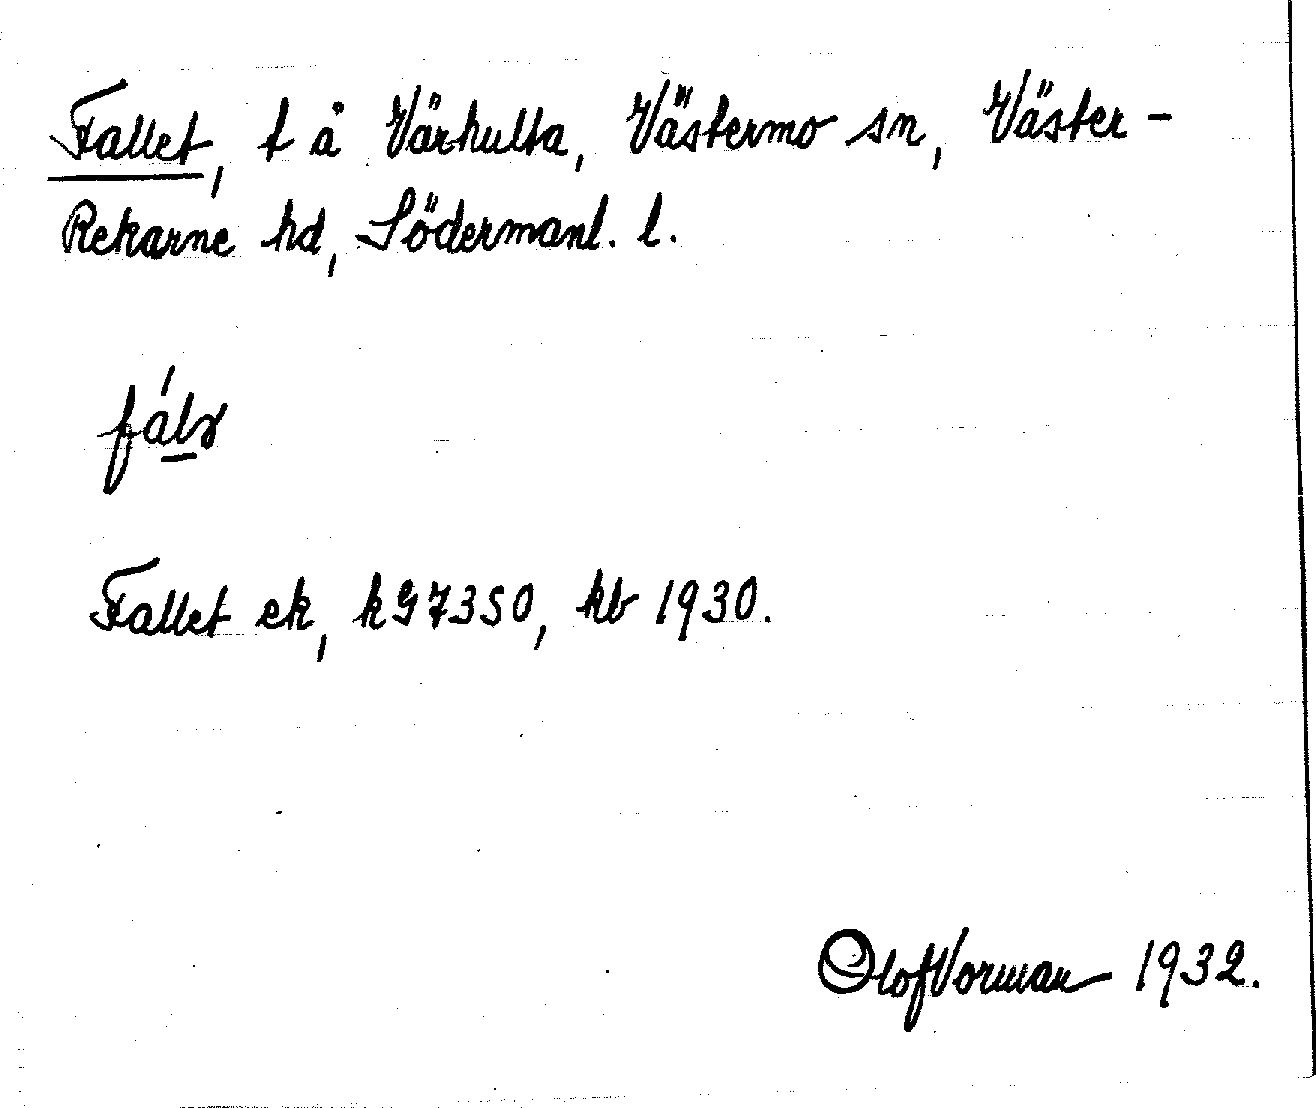 Fallet, t å Värhulta, Västermo sn, Väster-
Rekarne hd, Södermanl. l.
fálɤ
Fallet ek, kG7350, kb 1930.
Olof Vorman 1932.